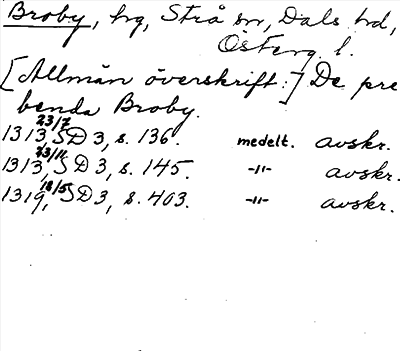 Broby, hg, Strå sn, Dals hd,
Österg. l.
[Allmän överskrift:] De pre
benda Broby.
1313 23/7, SD 3, s. 136. medelt. avskr.
1313 23/11, SD 3, s. 145. -"- avskr.
1319, 18/5 SD 3, s. 403. -"- avskr.